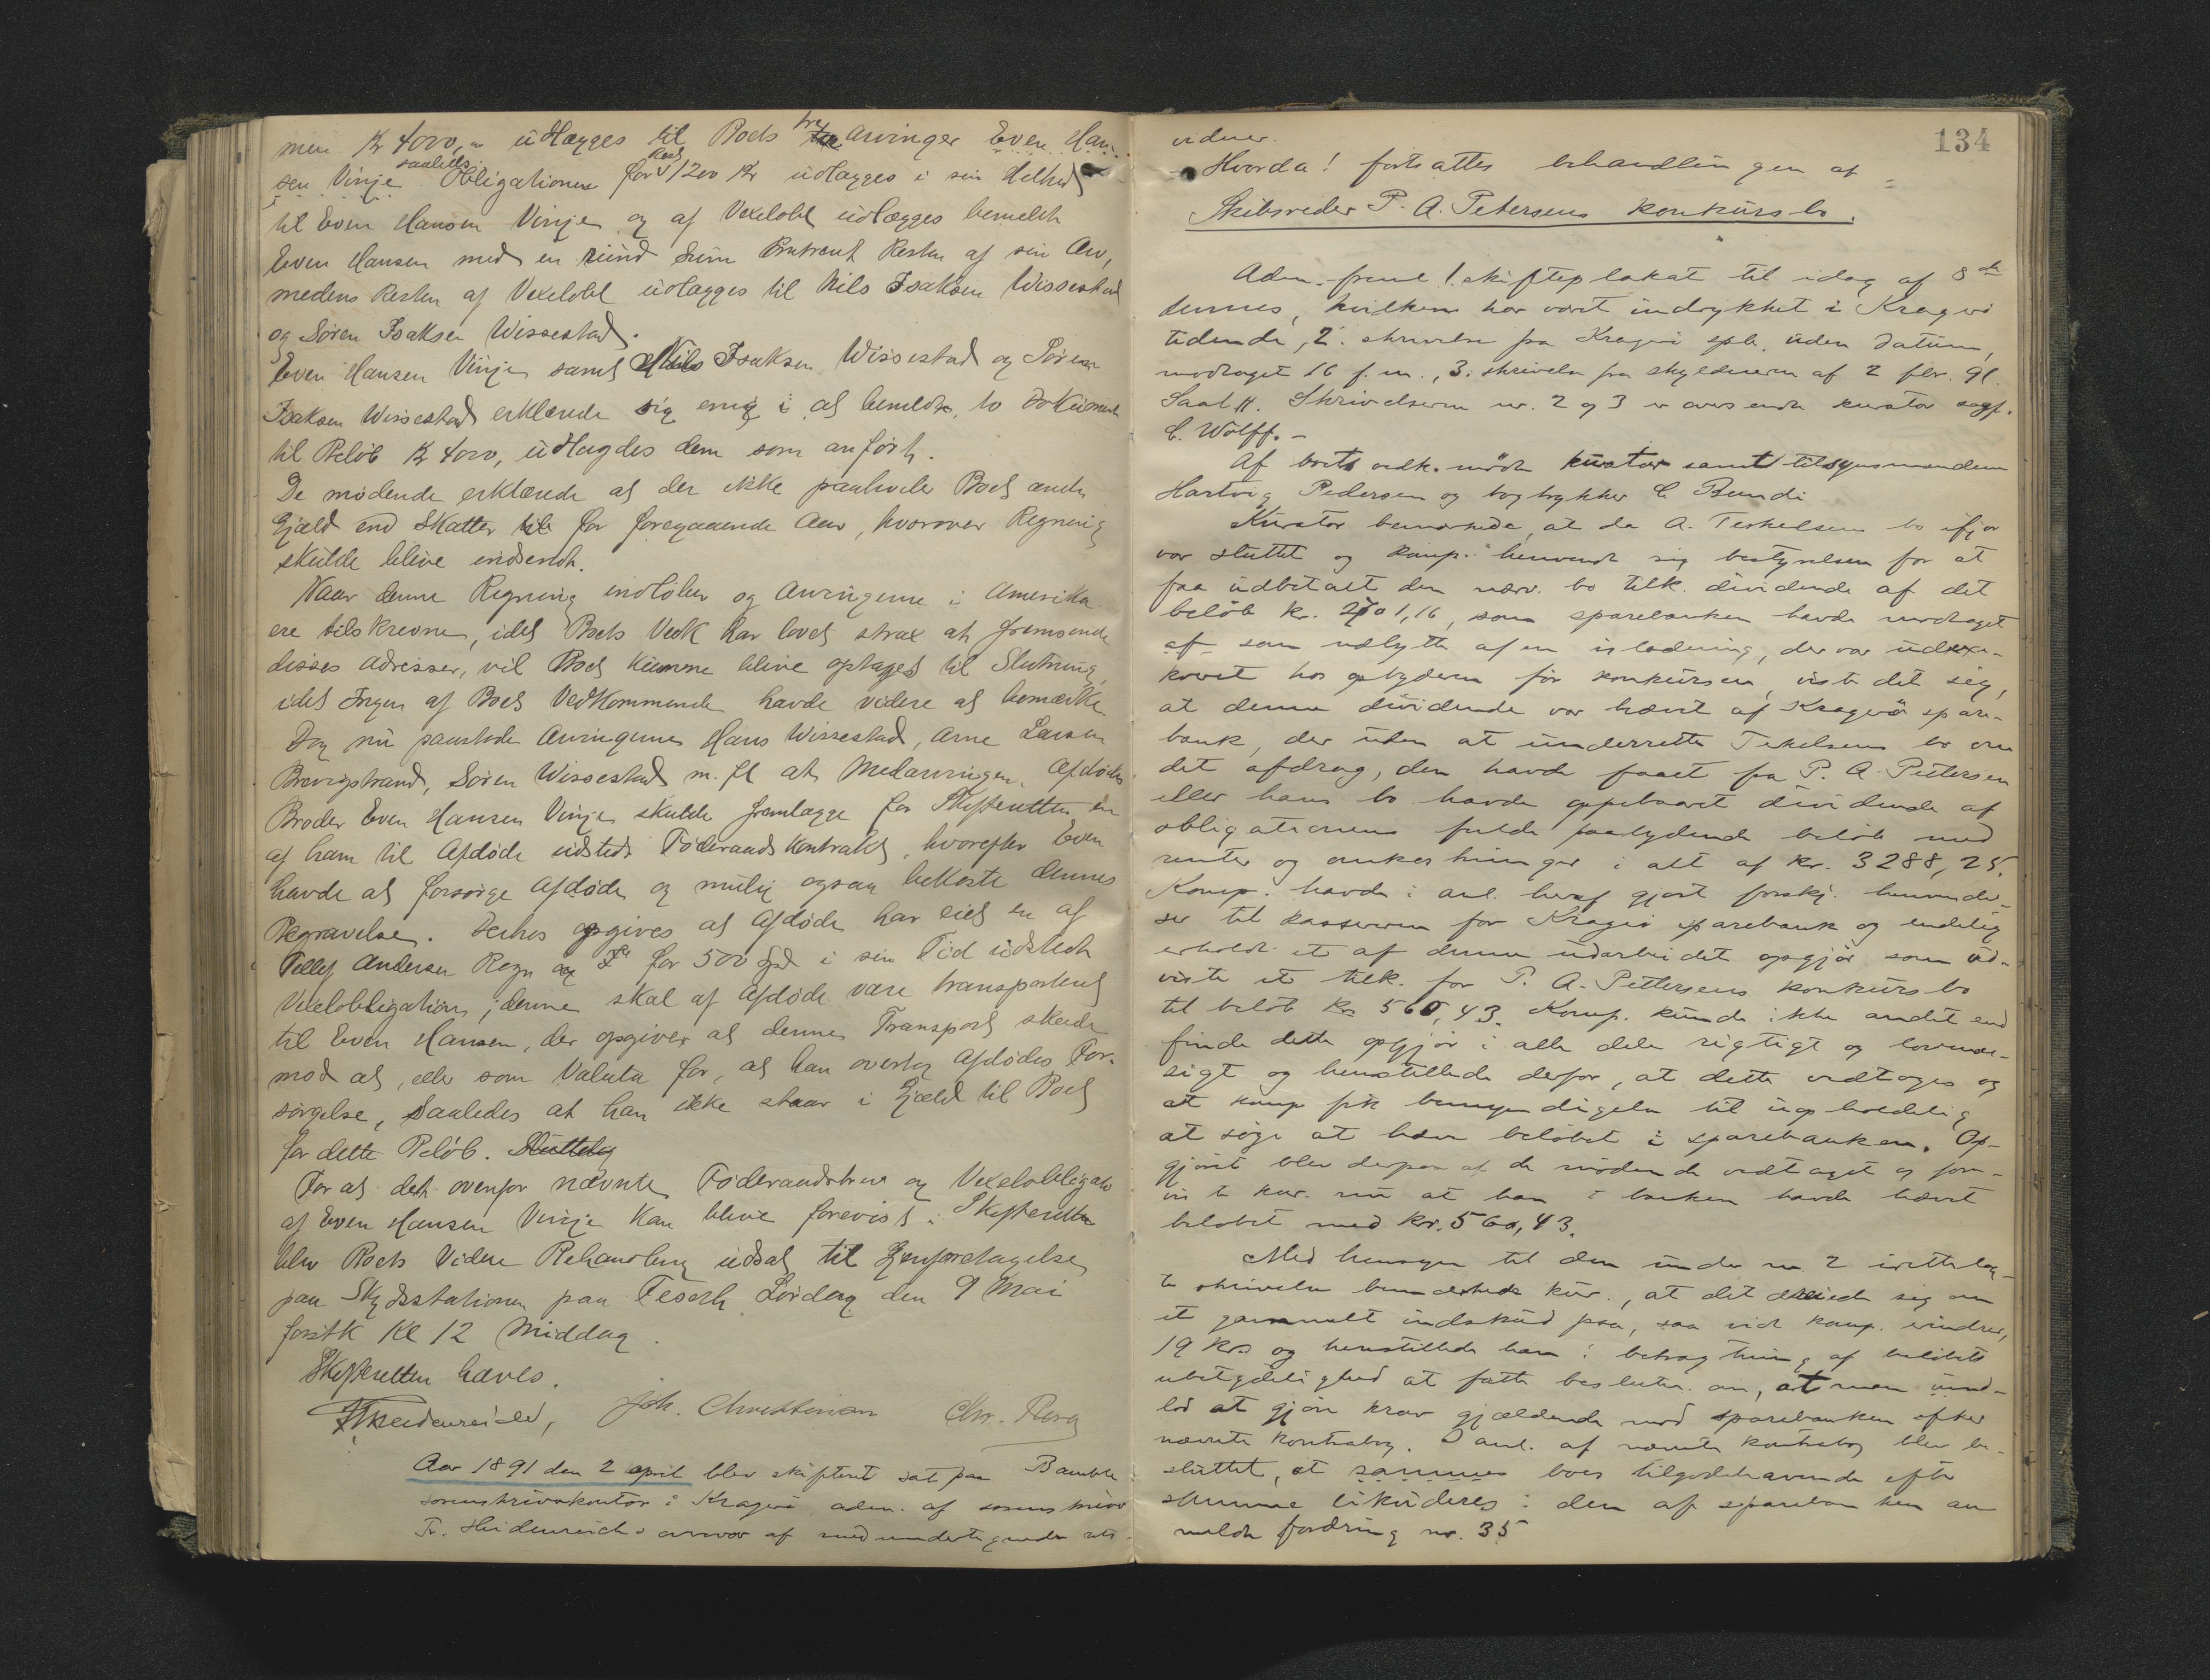 men Kr 4000,- udlægges til Boets tre Arvinger Even Han-
sen Vinje saaledes: Obligationen for 1200 Kr udlægges i sin Helhed
til Even Hansen Vinje og af Vexelobl udlægges bemeldte
Even Hansen med en rund Sum omtrent Resten af sin Arv,
medens Resten af Vexelobl udlægges til Nils Isaksen Wissestad
og Søren Isaksen Wissestad.
Even Hansen Vinje samt Nils Isaksen Wissestad og Søren
Isaksen Wissestad erklærede sig enig i at bemeldte to Dokumenter
til Beløb Kr 4000, udlagdes dem som anført.
De mødende erklærede at der ikke paahviler Boet anden
Gjæld end Skatter for foregaaende Aar, hvorover Regning
skulde blive indsendt.
Naar denne Regning indløber og Arvingerne i Amerika
ere tilskrevne, idet Boets Vedk har lovet strax at fremsende
disses Adresser, vil Boet kunne blive optaget til Slutning,
idet Ingen af Boets Vedkommende havde videre at bemærke
Dog nu paastode Arvingerne Hans Wissestad, Arne Larsen
Brevigstrand, Søren Wissestad m. fl at Medarvingen, Afdødes
Broder Even Hansen Vinje skulde fremlægge for Skifteretten en
af ham til Afdøde udstedt Føderaadskontrakt, hvorefter Even
havde at forsørge Afdøde og mulig ogsaa bekoste dennes
Begravelse. Derhos opgives at Afdøde har eiet en af
Tellef Andersen Rogn for 500 Spd i sin Tid udstedt
Vexelobligation; denne skal af Afdøde være transporteret
til Even Hansen, der opgiver at denne Transport skede
mod at, eller som Valuta for, at han overtog Afdødes For-
sørgelse, saaledes at han ikke staar i Gjæld til Boet
for dette Beløb. Sluttelig
For at det ovenfor nævnte Føderaadsbrev og Vexelobligation
af Even Hansen Vinje kan blive forevist i Skifteretten
blev Boets videre Behandling udsat til Gjenforetagelse
paa Skydsstationen paa Feseth Lørdag den 9 Mai
førstk Kl 12 Middag.
Skifteretten hævet.
Fr Heidenreich, Joh. Christensen Chr. Berg
Aar 1891 den 2 april blev skifteret sat paa Bamble
sorenskriverkontor i Kragerø adm. af sorenskriver
Fr. Heidenreich i overvær af medundertegnede rets-
134
vidner.
Hvorda! fortsattes behandlingen af
Skibsreder P. A. Petersens konkursbo.
Adm. freml. 1. skifteplakat til idag af 8de
dennes, hvilken har været indrykket i Kragerø
tidende, 2. skrivelse fra Kragerø spb. uden datum,
modtaget 16 f. m., 3. skrivelse fra skyldneren af 2 febr. 91.
Saal #. Skrivelserne nr. 2 og 3 er oversendt kurator sagf.
C. Wolff. -
Af boets vedk. mødte kurator samt tilsynsmændene
Hartvig Pedersen og bogtrykker C Bundi
Kurator bemærkede, at da A. Terkelsens bo ifjor
var sluttet og komp. henvendte sig bestyrelsen for at
faa udbetalt den nærv. bo tilk. dividende af det
beløb kr. 2701,16, som sparebanken havde modtaget
af som udbytte af en isladning, der var
hos opbyderen før konkursen, viste det sig,
at denne dividende var hævet af Kragerø spare-
bank, der uden at underrette Terkelsens bo om
det afdrag, den havde faaet fra P. A. Pettersen
eller hans bo havde oppebaaret dividende af
obligationens fulde paalydende beløb med
renter og omkostninger i alt af kr. 3288,25.
Komp. havde i anl. heraf gjort forskj. henvendel-
ser til kassereren for Kragerø sparebank og endelig
erholdt et af denne udarbeidet opgjør som ud-
viste et tilk. for P. A. Pettersens konkursbo
til beløb Kr 560,43. Komp. kunde ikke andet end
finde dette opgjør i alle dele rigtigt og
og henstillede derfor, at dette vedtoges og
at komp fik bemyndigelse til uopholdelig
at søge at hæve beløbet i sparebanken. Op-
gjøret blev derpaa af de mødende vedtaget og
kur. nu at han i banken havde hævet
beløbet med kr. 560,43.
Med hensyn til den under nr. 2 irettelag-
te skrivelse bemærkede kur., at det dreiede sig om
et gammelt indskud paa, saa vidt komp. erindrer,
19 kr. og henstillede han i betragtning af beløbets
ubetydelighed at fatte beslutn. om, at man und-
lod at gjøre krav gjældende mod sparebanken efter
nævnte kontrabog. I anl. af nævnte kontrabog blev be-
sluttet, at sammes boes tilgodehavende efter
samme likvideres i den af sparebanken an-
meldte fordring nr. 35